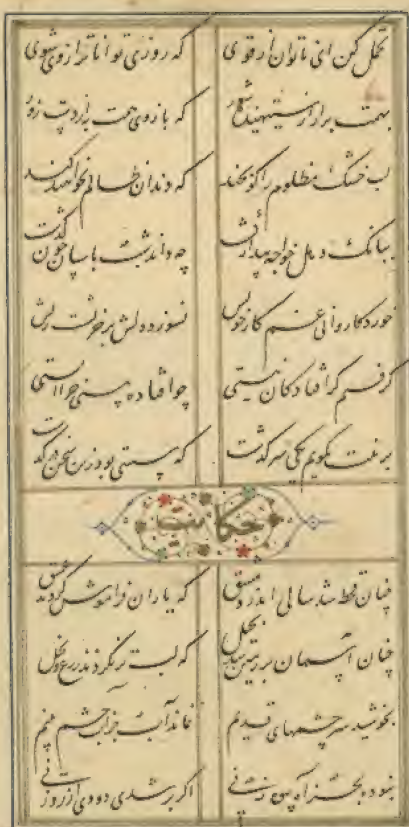 تحمل کن ای ناتوان از قوی که روزی تواناتر از وی شوی
بهمت برار از ستیهنده شور که بازوی همت به از دست زور
لب خشک مظلوم را گو بخند که دندان ظالم بخواهند کند
ببانک دهل خواجه بیدار گشت چه داند شب پاسبان چون گذشت
خورد کاروانی غم کار خویش نسوزد دلش بر خر پشت ریش
گرفتم کز افتادگان نیستی چو افتاده بینی چرا ایستی
برینت بگویم یکی سرگذشت که سستی بود زین سخن درگذشت
حکایت
چنان قحط شد سالی اندر دمشق که یاران فراموش کردند عشق
چنان آسمان بر زمین شد بخیل که لب تر نکردند زرع و نخیل
بخوشید سرچشمهای قدیم نماند آب جز آب چشم یتیم
نبوده بجز آه بیوه زنی اگر برشدی دودی از روزنی